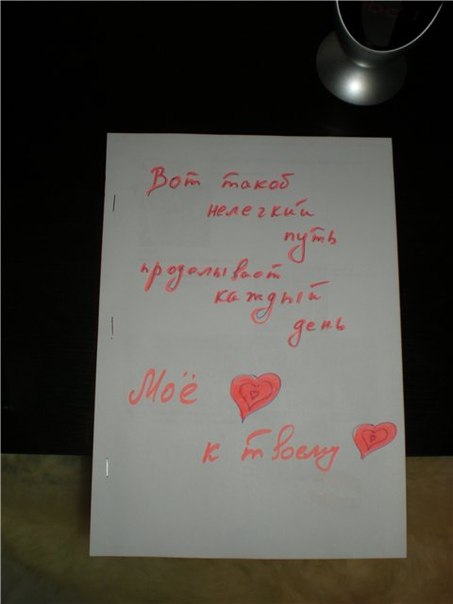 Вот такой
нелегкий
путь
проделывает
каждый
день
Моё
к твоему